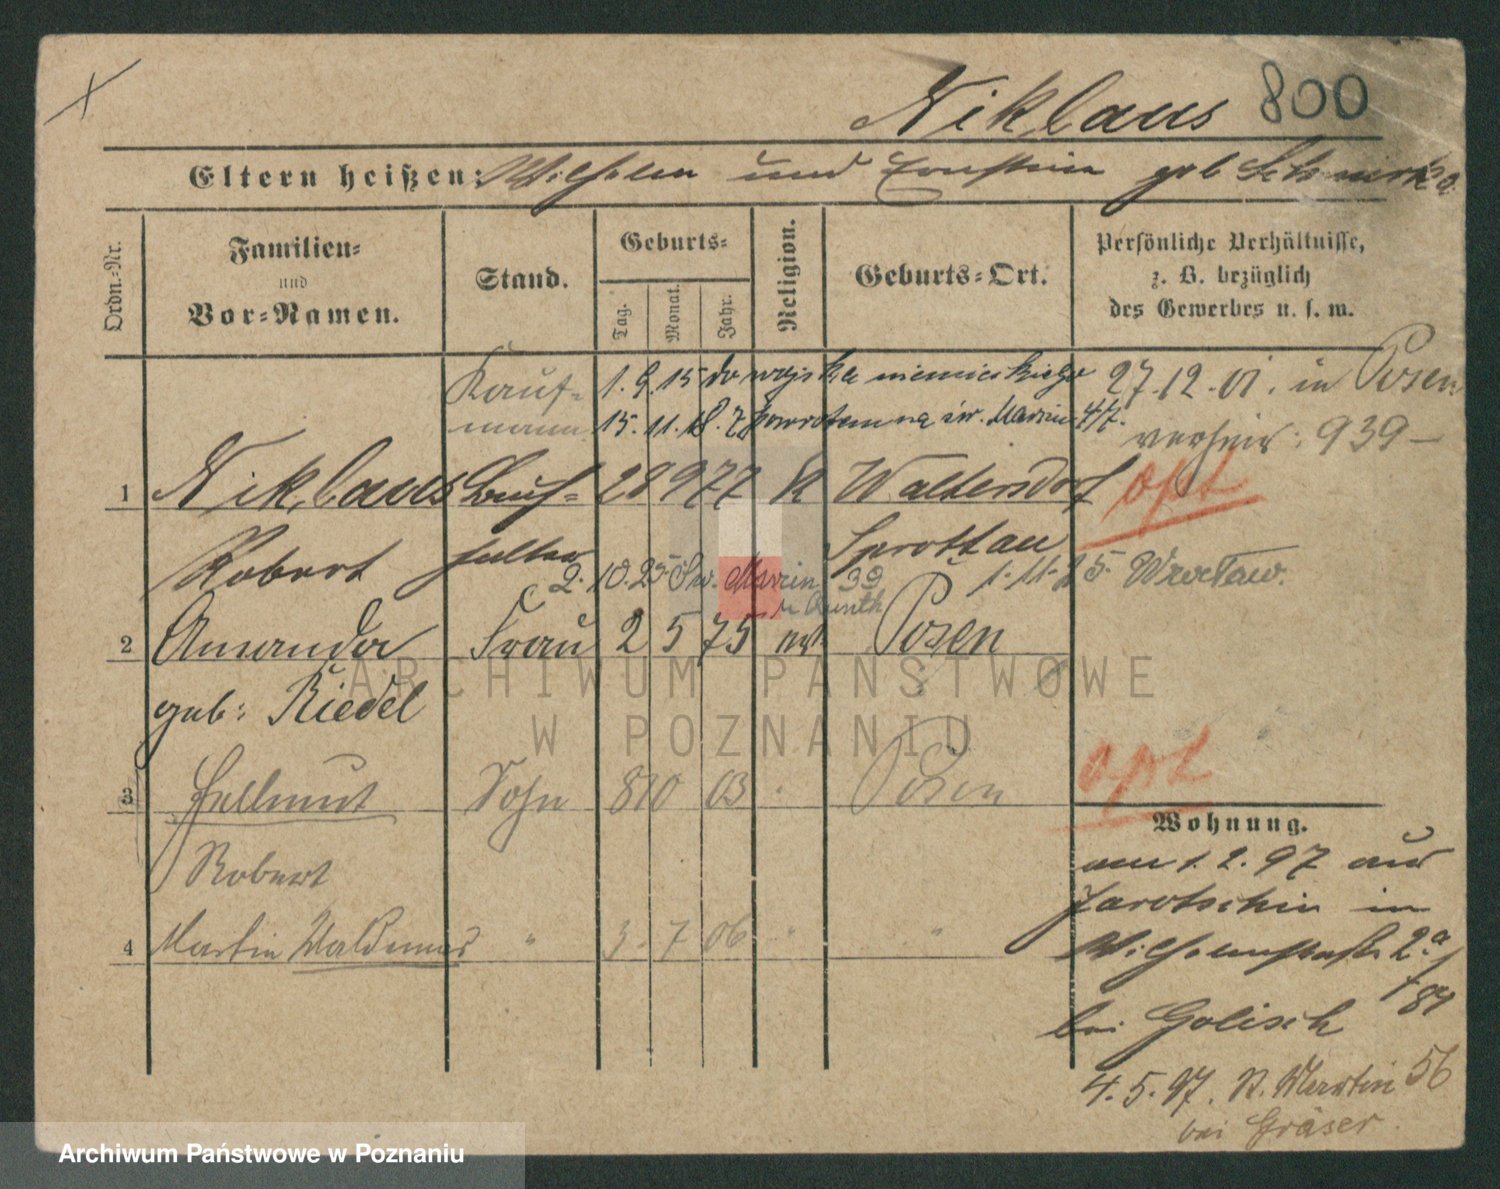 Niklaus 800
Eltern heißen: Wilhelm und Ernestine geb
Ordn.-Nr.
Familien-
und
Vor-Namen.
Stand.
Geburts-
Tag.
Monat.
Jahr.
Religion.
Geburts-Ort.
Persönliche Verhältnisse,
z. B. bezüglich
des Gewerbes u. s. w.
Kauf-
mann
1. 9. 15 do wojska niemieckiego
15. 11. 18. z powrotem na św. Marcin 4/7.
27.12.01. in Posen
verheir: 939
1 Niklaus Buch- 28 9 77 K Waltersdorf
opt
Robert halter Sprottau
2. 10. 25 Św. Marcin 39
1. 11. 25. Wrocław.
2 Amanda Frau 2 5 75 ev Posen
geb: Riedel
ARCHIWUM PAŃSTWOWE
W POZNANIU
opt
3 Hellmut Sohn 8 10 03 Posen
Robert
4 Martin Waldemar " 3 7 06 " "
Wohnung.
am 1. 2. 97 aus
Jarotschin in
Wilhelmstraße 2a
bei Golisch
4. 5. 97. St. Martin 56
bei Gräser
Archiwum Państwowe w Poznaniu